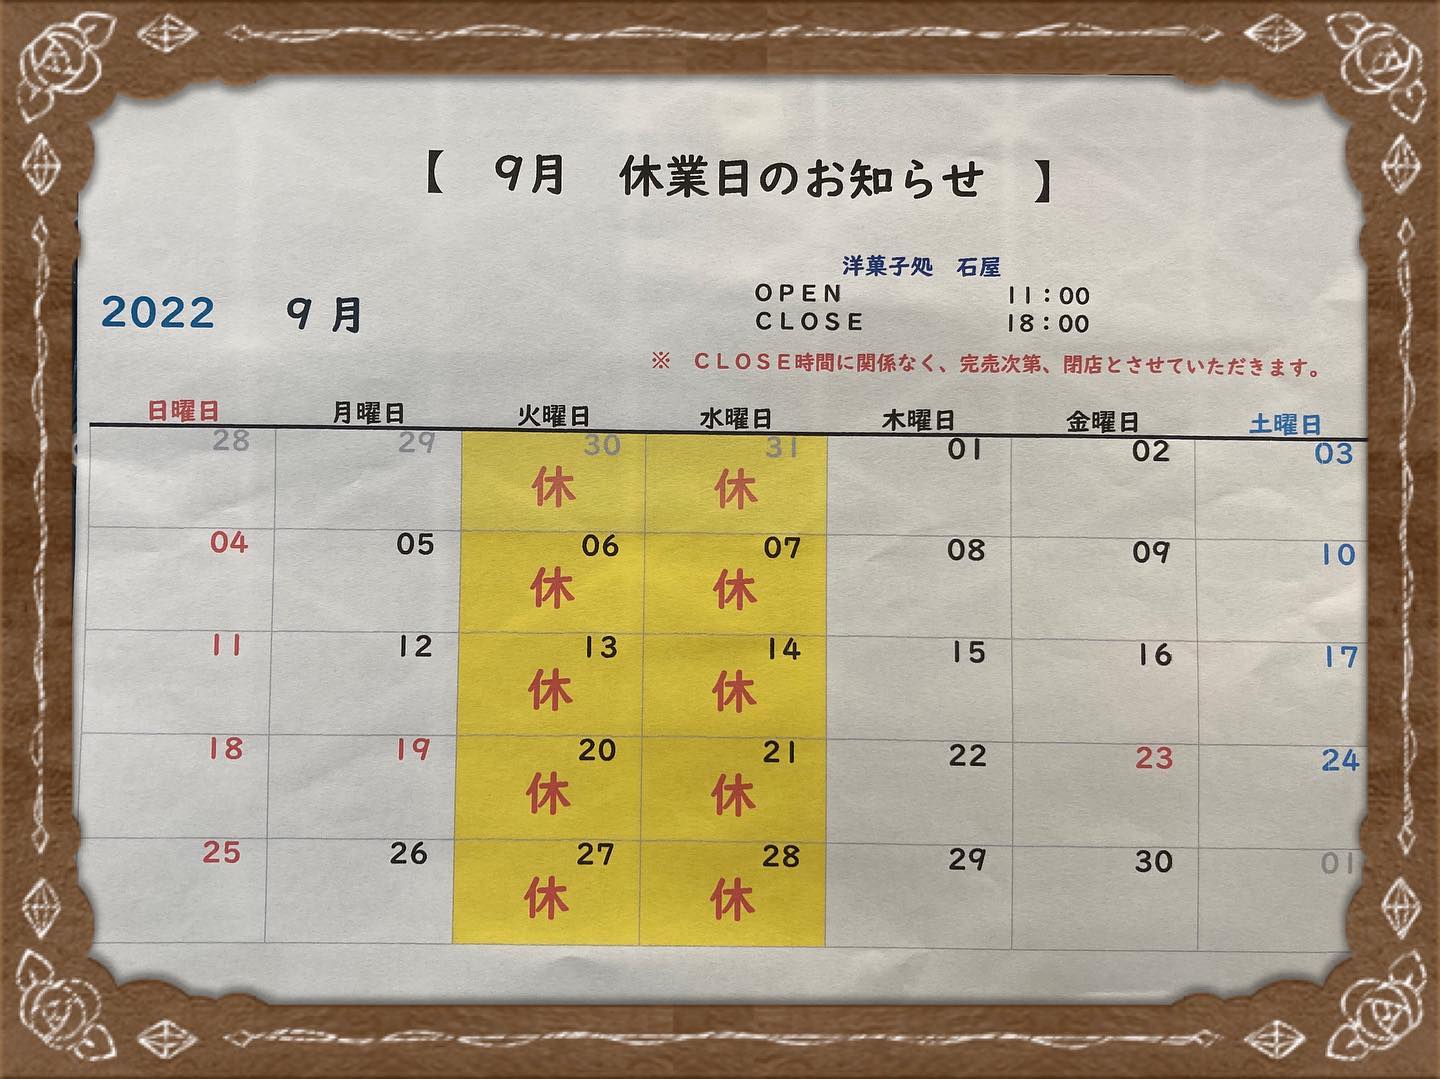 【　9月　休業日のお知らせ　】
洋菓子処　石屋
OPEN 11：00
2022 9月
CLOSE 18：00
※　CLOSE時間に関係なく、完売次第、閉店とさせていただきます。
日曜日 月曜日 火曜日 水曜日 木曜日 金曜日 土曜日
28 29 30 31 01 02 03
休 休
04 05 06 07 08 09 10
休 休
11 12 13 14 15 16 17
休 休
18 19 20 21 22 23 24
休 休
25 26 27 28 29 30 01
休 休